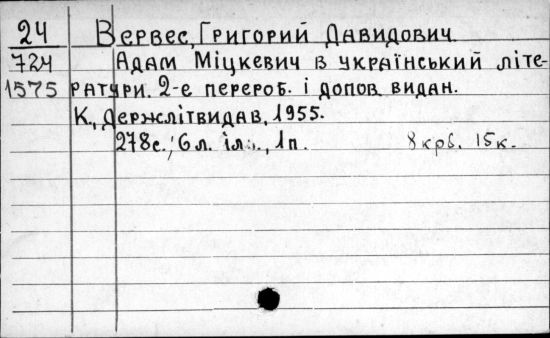 24 Вервес, Григорий Давидович.
724 Адам Міцкевич в український літе-
1575 ратури. 2-е перероб. і допов. видан.
К., Держлітвидав, 1955.
278с.; 6л. іл., 1п. 8 крб. 15к.